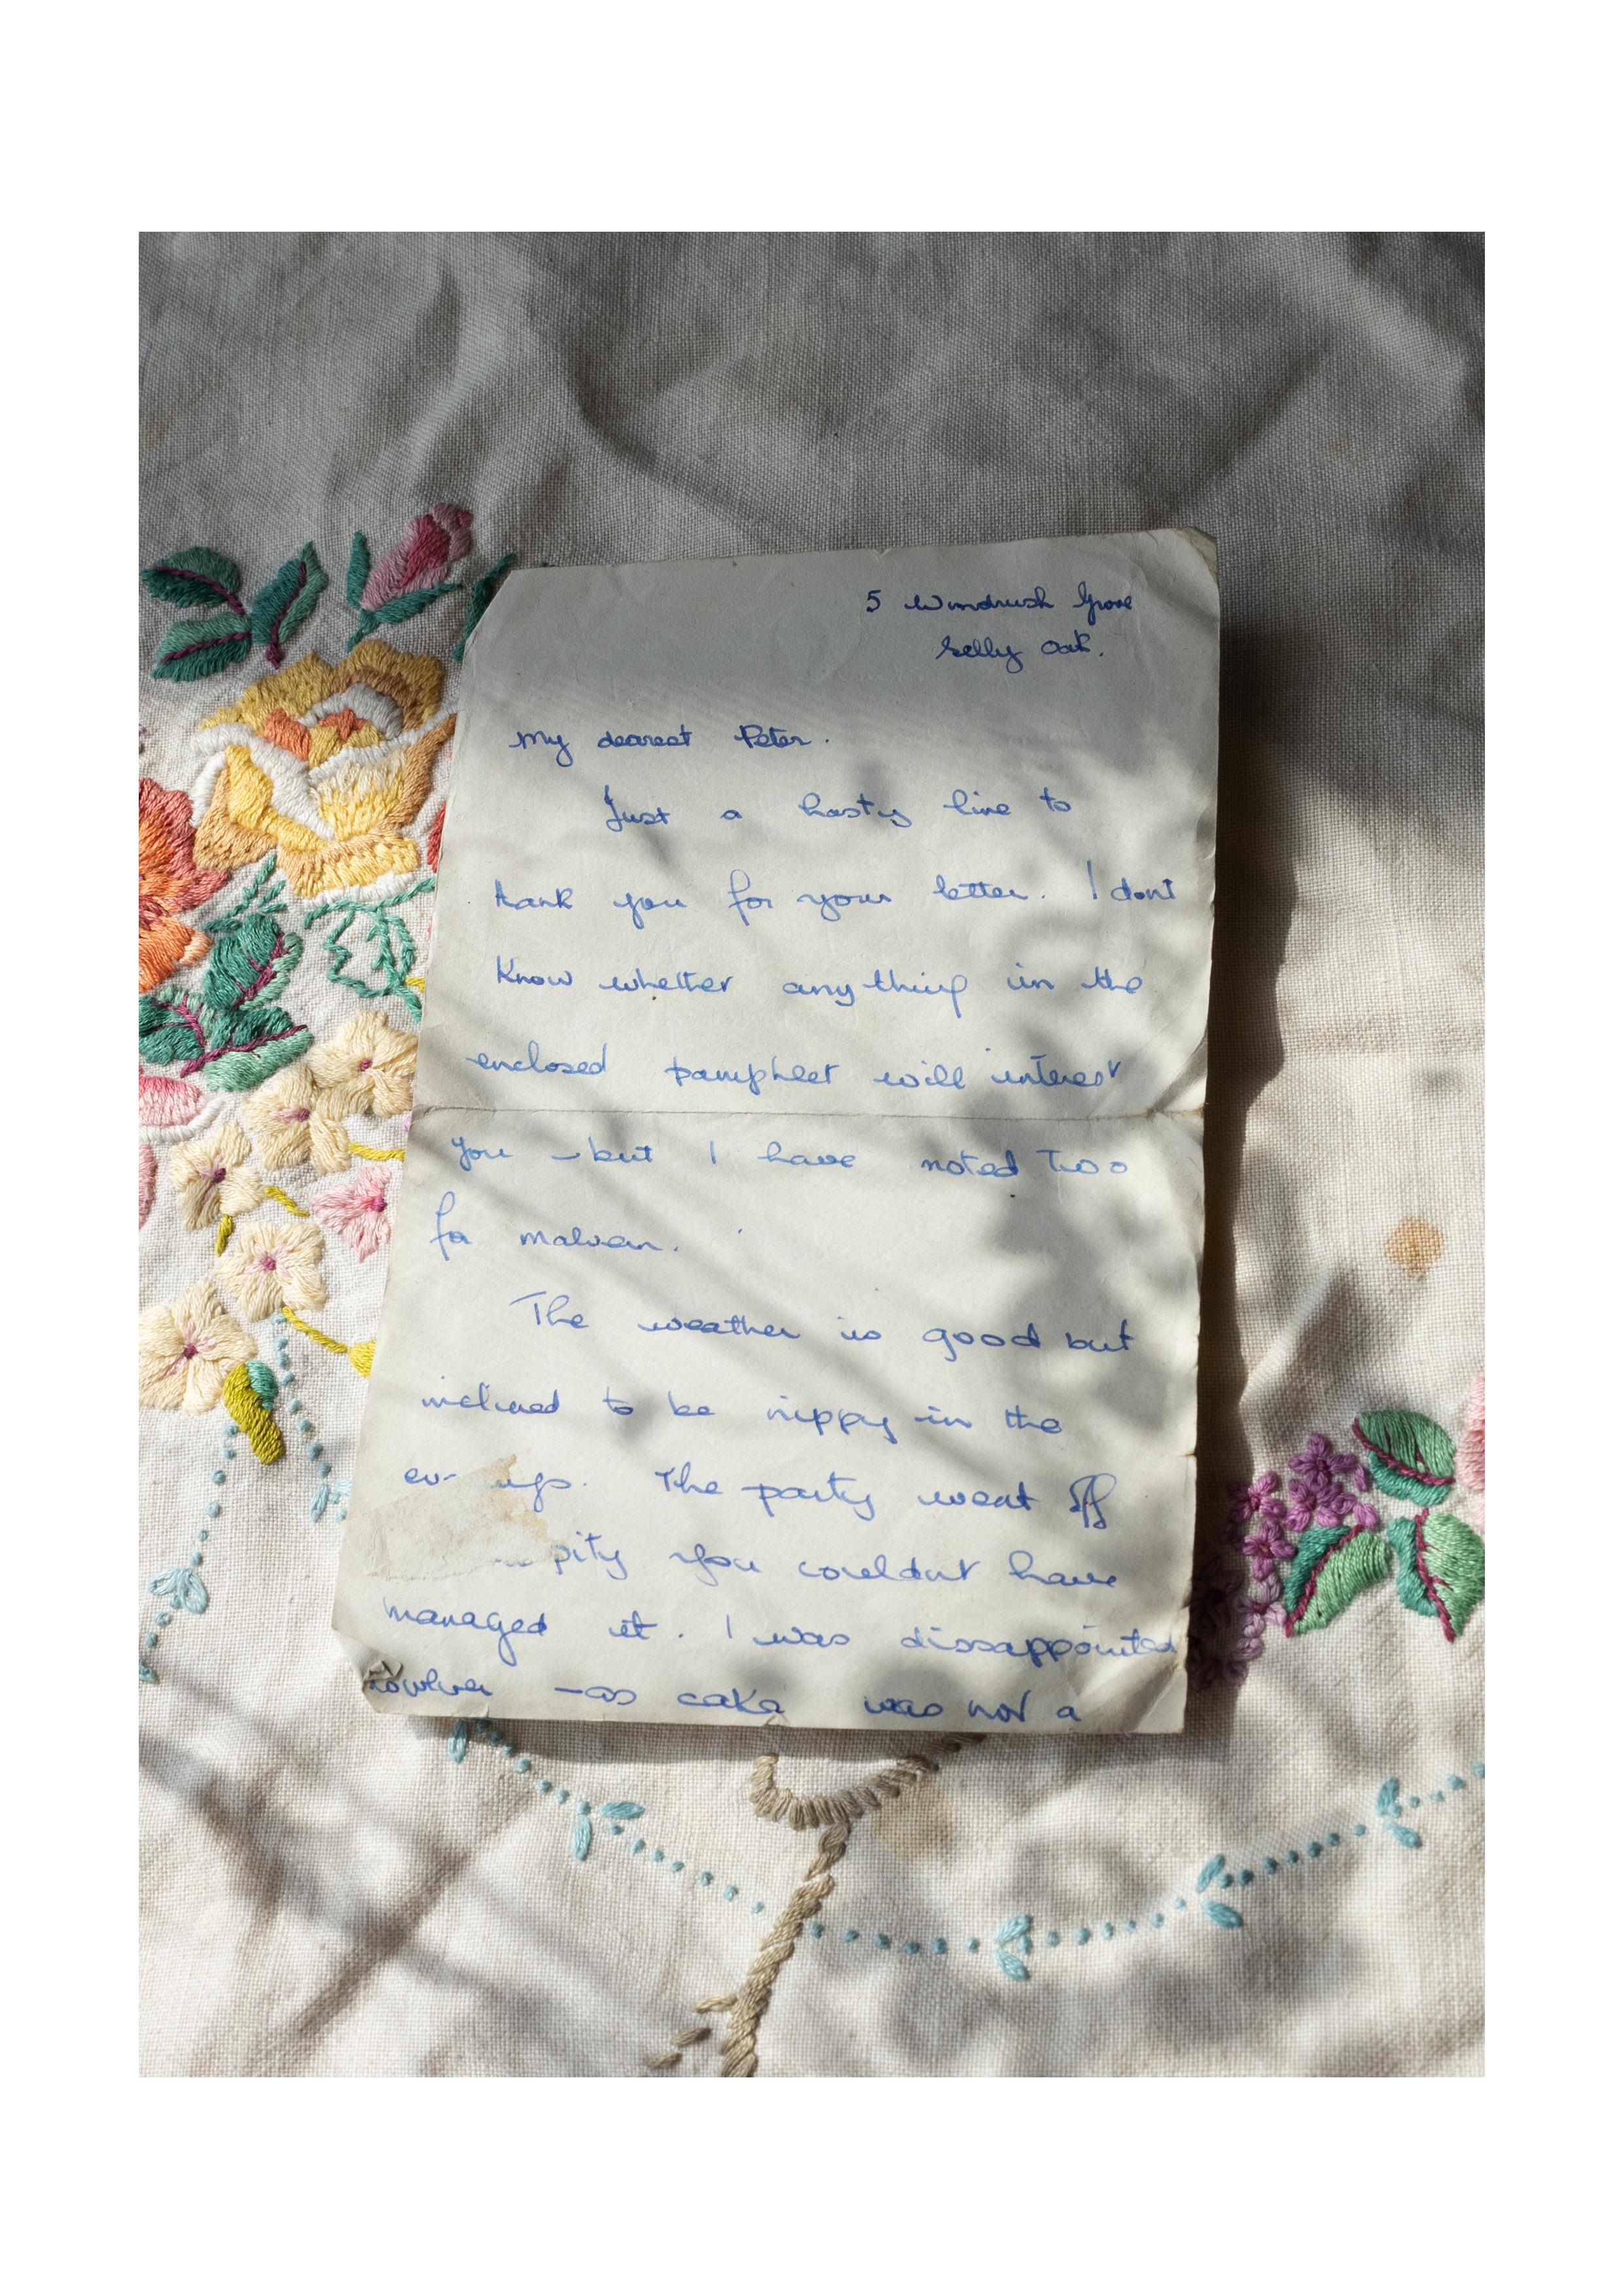 5 Windrush Grove
Selly Oak.
My dearest Peter.
Just a hasty line to
thank you for your letter. I dont
know whether anything in the
enclosed pamphlet will interest
you – but I have noted two
for malvern.
The weather is good but
inclined to be nippy in the
The party went off
pity you couldnt have
managed it. I was dissappointed
however – as cake was not a